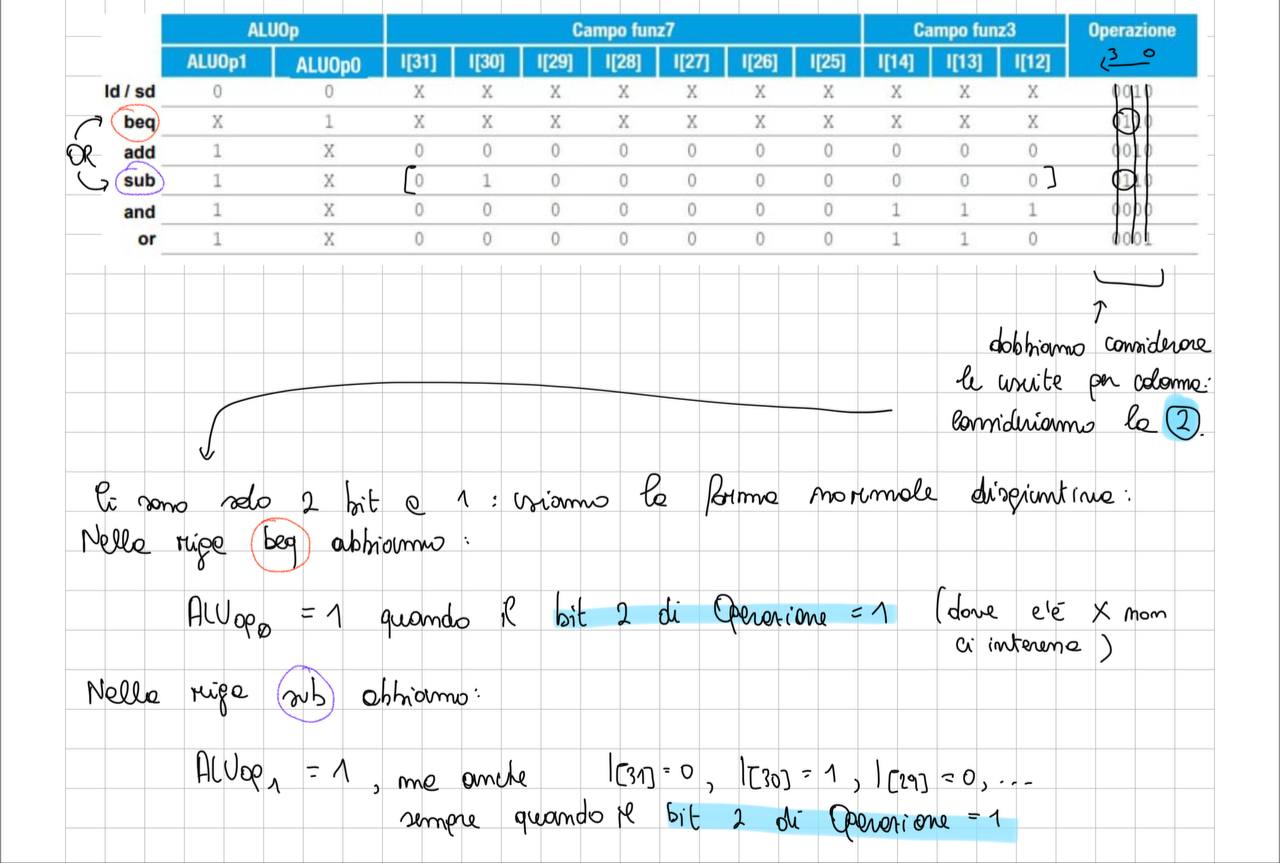 ALUOp Campo funz7 Campo funz3 Operazione
ALUOp1 ALUOp0 I[31] I[30] I[29] I[28] I[27] I[26] I[25] I[14] I[13] I[12] 3 0
ld / sd 0 0 X X X X X X X X X X 0010
beq X 1 X X X X X X X X X X 0110
OR
add 1 X 0 0 0 0 0 0 0 0 0 0 0010
sub 1 X [0 1 0 0 0 0 0 0 0 0] 0110
and 1 X 0 0 0 0 0 0 0 1 1 1 0000
or 1 X 0 0 0 0 0 0 0 1 1 0 0001
dobbiamo considerare
le uscite per colonna:
consideriamo la 2.
Ci sono solo 2 bit a 1 : usiamo la forma normale disgiuntiva:
Nella riga beq abbiamo :
ALUop0 = 1 quando il bit 2 di Operazione = 1 (dove c'è X non
ci interessa )
Nella riga sub abbiamo:
ALUop1 = 1 , ma anche I[31] = 0, I[30] = 1, I[29] = 0, ...
sempre quando il bit 2 di Operazione = 1